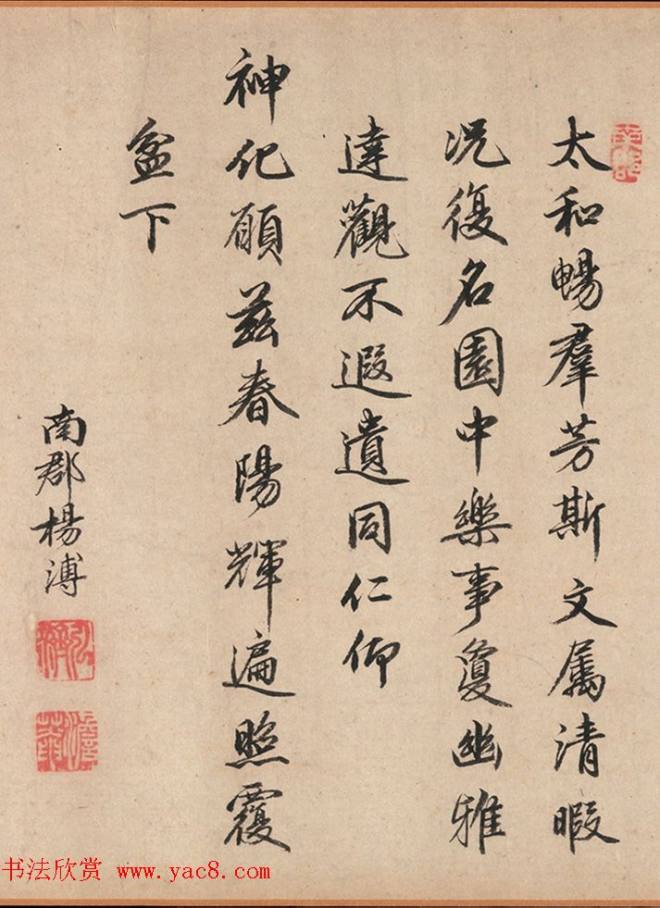 太和暢羣芳斯文屬清暇
况復名園中樂事夐幽雅
達觀不遐遺同仁仰
神化願茲春陽輝遍照覆
盆下
南郡楊溥
书法欣赏 www.yac8.com